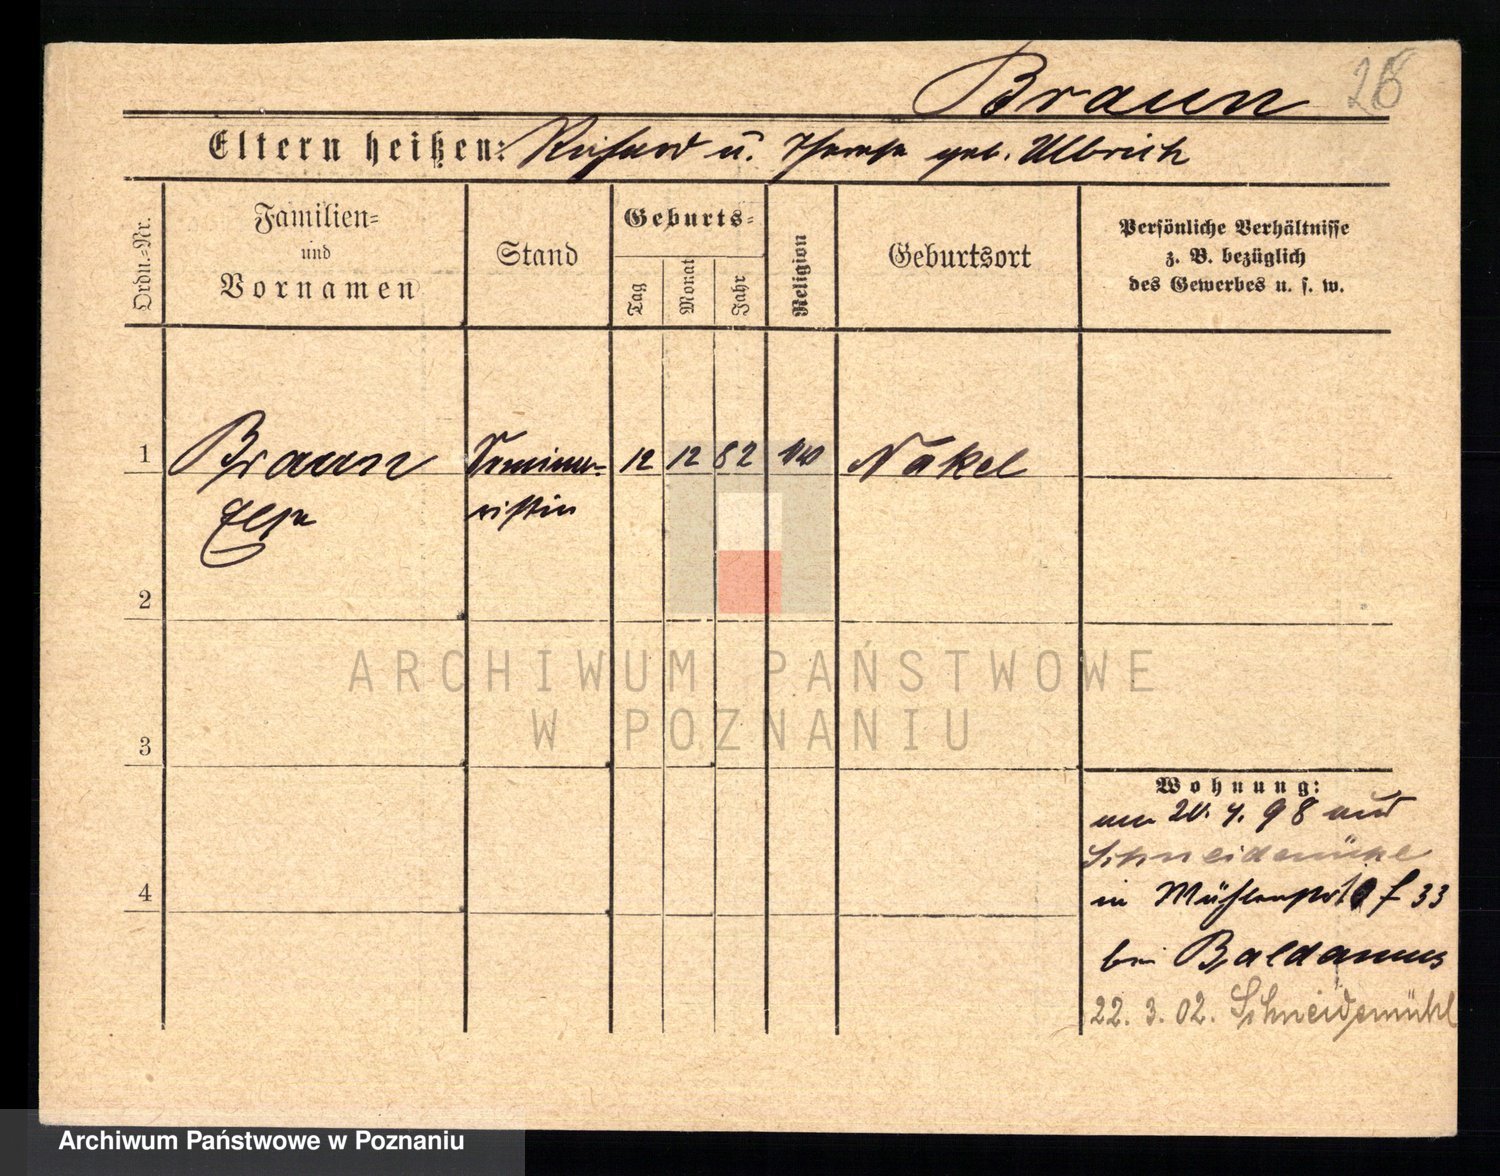 Braun 26
Eltern heißen: Richard u. Therese geb. Ulbrich
Ordn.=Nr.
Familien=
und
Vornamen
Stand
Geburts=
Tag
Monat
Jahr
Religion
Geburtsort
Persönliche Verhältnisse
z. B. bezüglich
des Gewerbes u. s. w.
1 Braun Semina- 12 12 82 Nakel
Else ristin
2
3
4
Wohnung:
98 aus
Schneidemühl
in Mühlenstr. 33
bei Baldamus
22. 3. 02. Schneidemühl
ARCHIWUM PAŃSTWOWE
W POZNANIU
Archiwum Państwowe w Poznaniu